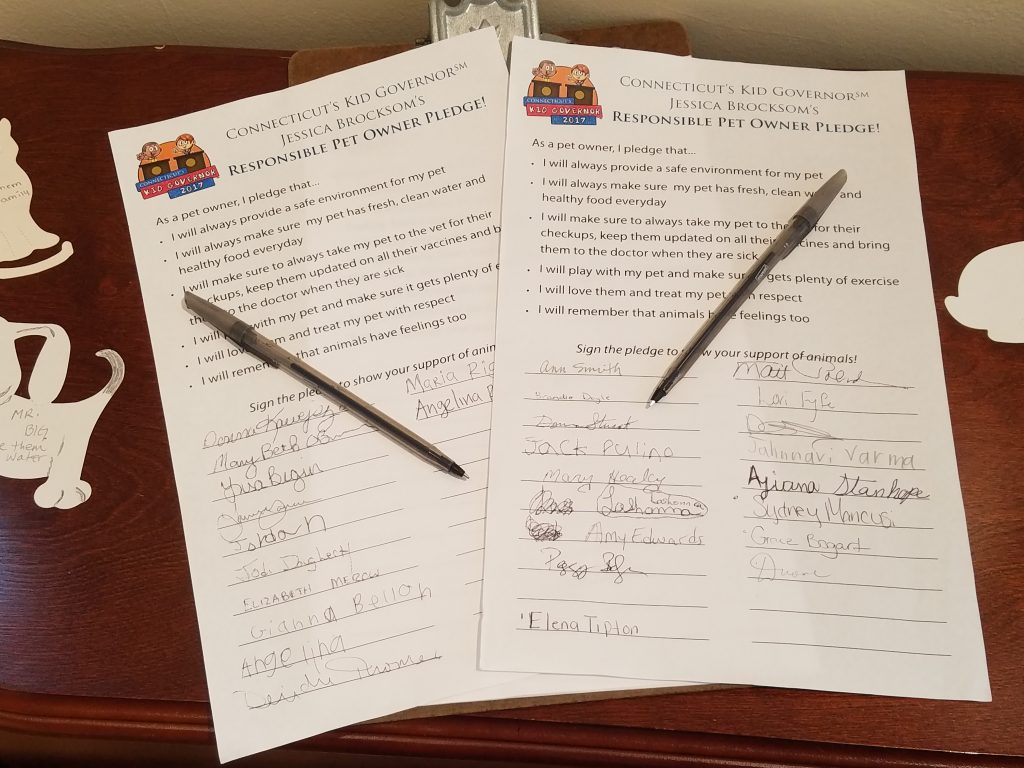 CONNECTICUT'S KID GOVERNOR℠
JESSICA BROCKSOM'S
RESPONSIBLE PET OWNER PLEDGE!
CONNECTICUT'S
KID GOVERNOR
2017
As a pet owner, I pledge that...
• I will always provide a safe environment for my pet
• I will always make sure my pet has fresh, clean water and
healthy food everyday
• I will make sure to always take my pet to the vet for their
checkups, keep them updated on all their vaccines and b
to the doctor when they are sick
• I will with my pet and make sure it gets plenty of e
• I will and treat my pet with respect
• I will that animals have feelings too
Sign the pledge to show your support of anim
Maria
Angelina
Mary Beth
Lisa
Jordan
Jodi Dougherty
ELIZABETH
Gianna
Angelina
Deirdre
CONNECTICUT'S KID GOVERNOR℠
JESSICA BROCKSOM'S
RESPONSIBLE PET OWNER PLEDGE!
CONNECTICUT'S
KID GOVERNOR
2017
As a pet owner, I pledge that...
• I will always provide a safe environment for my pet
• I will always make sure my pet has fresh, clean and
healthy food everyday
• I will make sure to always take my pet to the for their
checkups, keep them updated on all their and bring
them to the doctor when they are sick
• I will play with my pet and make sure gets plenty of exercise
• I will love them and treat my pet respect
• I will remember that animals have feelings too
Sign the pledge to show your support of animals!
Ann Smith
Matt
Lori Fyfe
Jack
Jahnnavi Varma
Mary Healy
Ajiana Stanhope
Lashonna Lashonna
Sydney Mancusi
Amy Edwards
Grace Bogart
Peggy
Duane
Elena Tipton
MR.
BIG
them
Water